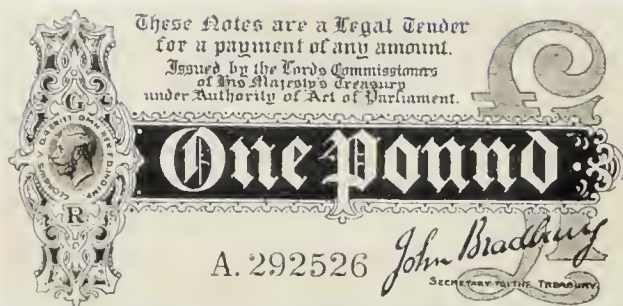 These Notes are a Legal Tender
for a payment of any amount.
Issued by the Lords Commissioners
of His Majesty's Treasury
under Authority of Act of Parliament.
G
R
One Pound
£1
A. 292526
John Bradbury
SECRETARY TO THE TREASURY.